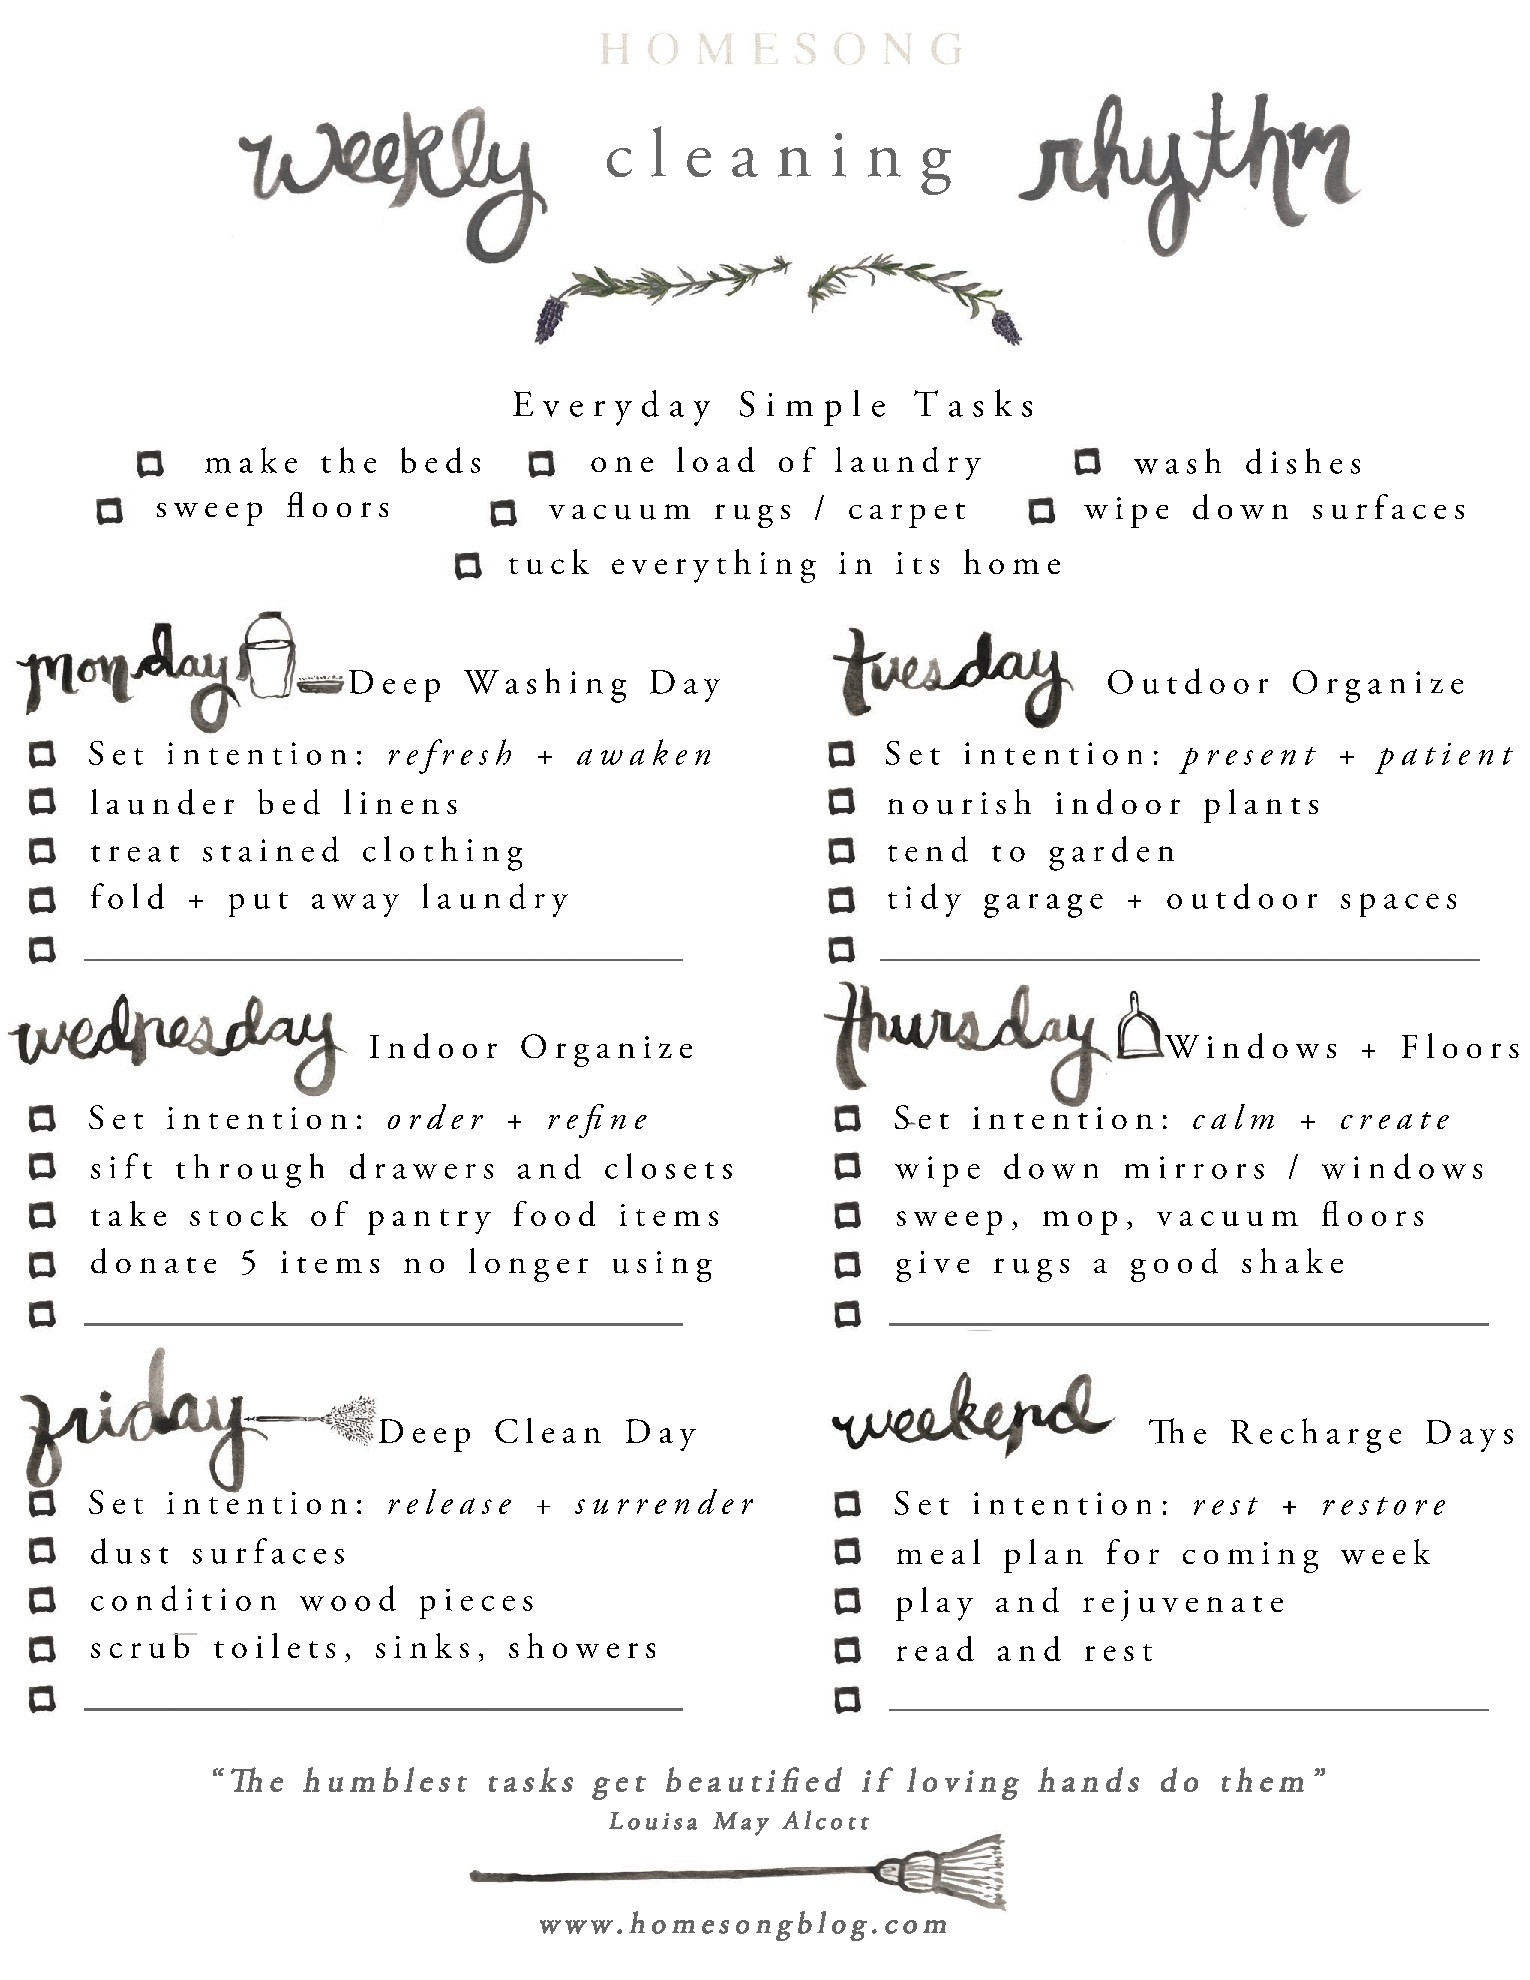 HOMESONG
weekly cleaning rhythm
Everyday Simple Tasks
make the beds one load of laundry wash dishes
sweep floors vacuum rugs / carpet wipe down surfaces
tuck everything in its home
monday Deep Washing Day
Set intention: refresh + awaken
launder bed linens
treat stained clothing
fold + put away laundry
tuesday Outdoor Organize
Set intention: present + patient
nourish indoor plants
tend to garden
tidy garage + outdoor spaces
wednesday Indoor Organize
Set intention: order + refine
sift through drawers and closets
take stock of pantry food items
donate 5 items no longer using
thursday Windows + Floors
Set intention: calm + create
wipe down mirrors / windows
sweep, mop, vacuum floors
give rugs a good shake
friday Deep Clean Day
Set intention: release + surrender
dust surfaces
condition wood pieces
scrub toilets, sinks, showers
weekend The Recharge Days
Set intention: rest + restore
meal plan for coming week
play and rejuvenate
read and rest
“The humblest tasks get beautified if loving hands do them”
Louisa May Alcott
www.homesongblog.com